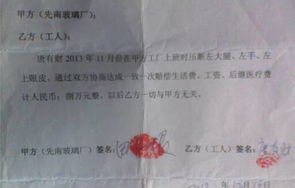 甲方（先南玻璃厂）：
乙方（工人）：
唐有财 2013 年 11 月份在甲方工厂上班时压断左大腿、左手、左
上眼皮，通过双方协商达成一致一次赔偿生活费、工资、后继医疗费
计人民币：捌万元整。以后乙方一切与甲方无关。
甲方（先南玻璃厂）签名：
乙方（工人）签名：